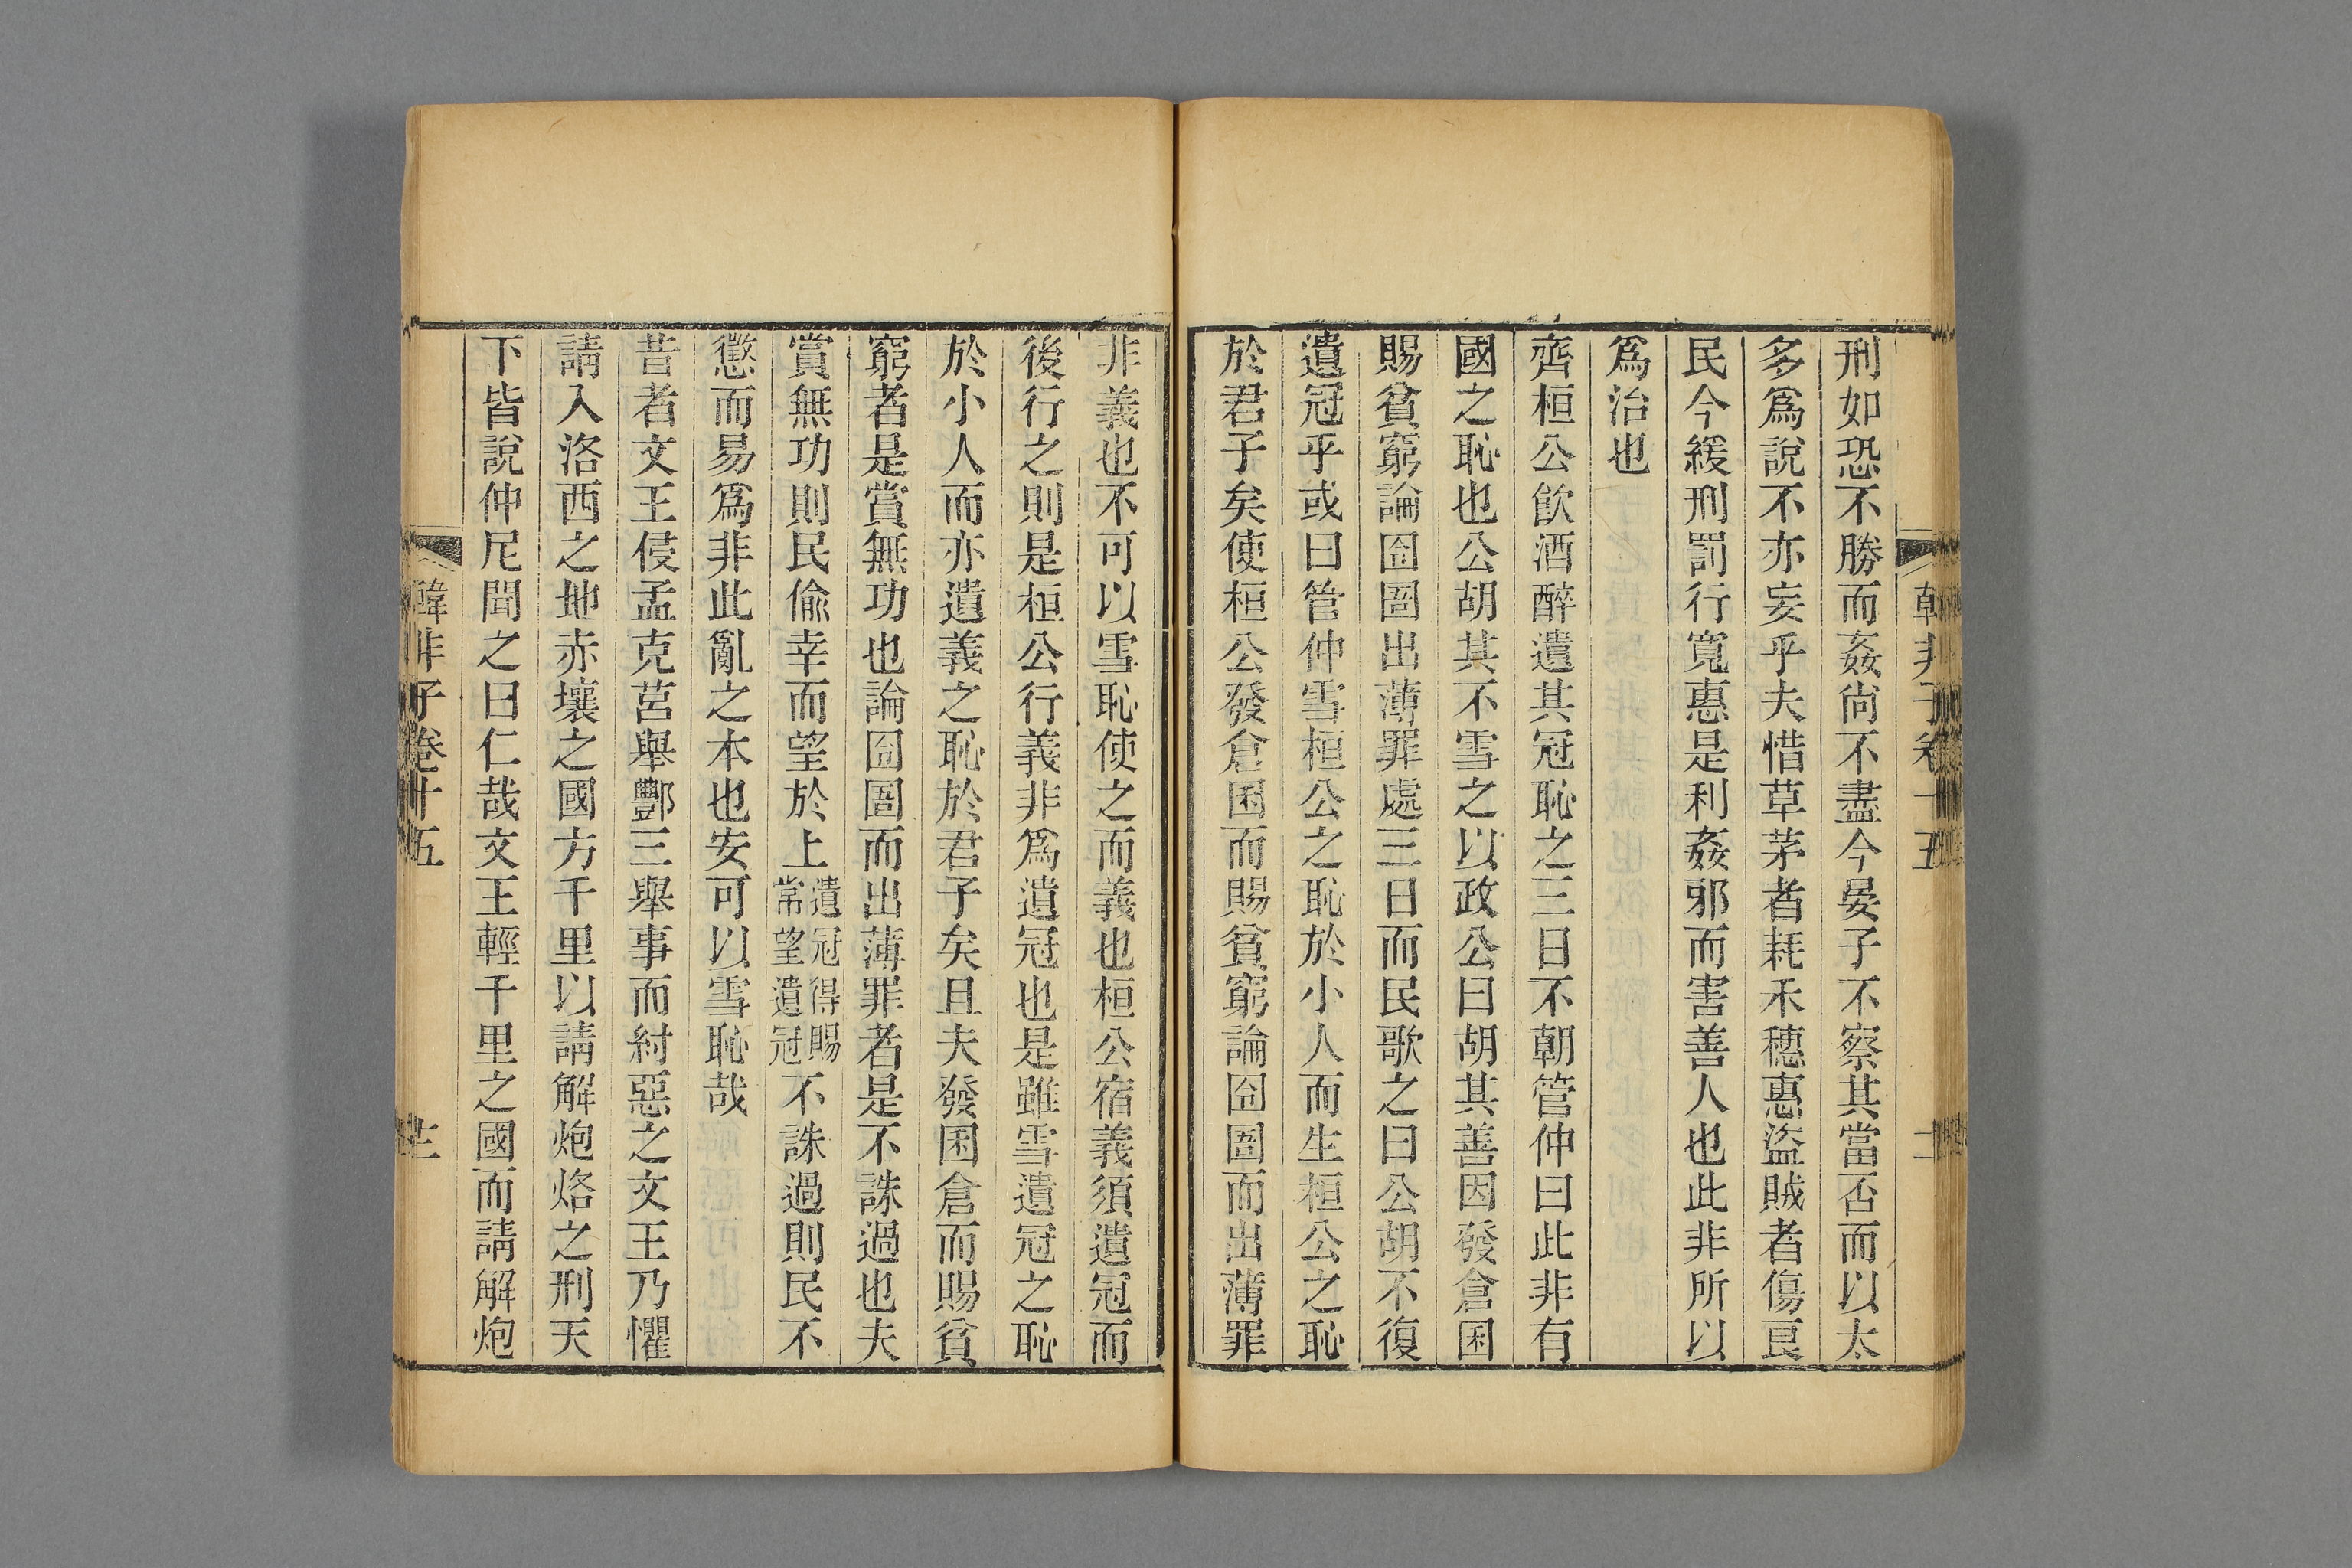 韓非子卷十五
二
刑如恐不勝而姦尙不盡今晏子不察其當否而以太
多爲說不亦妄乎夫惜草茅者耗禾穗惠盜賊者傷良
民今緩刑罰行寬惠是利姦邪而害善人也此非所以
爲治也
齊桓公飮酒醉遺其冠恥之三日不朝管仲曰此非有
國之恥也公胡其不雪之以政公曰胡其善因發倉囷
賜貧窮論囹圄出薄罪處三日而民歌之曰公胡不復
遺冠乎或曰管仲雪桓公之恥於小人而生桓公之恥
於君子矣使桓公發倉囷而賜貧窮論囹圄而出薄罪
非義也不可以雪恥使之而義也桓公宿義須遺冠而
後行之則是桓公行義非爲遺冠也是雖雪遺冠之恥
於小人而亦遺義之恥於君子矣且夫發囷倉而賜貧
窮者是賞無功也論囹圄而出薄罪者是不誅過也夫
賞無功則民偸幸而望於上遺冠得賜常望遺冠不誅過則民不
懲而易爲非此亂之本也安可以雪恥哉
昔者文王侵孟克莒舉酆三舉事而紂惡之文王乃懼
請入洛西之地赤壤之國方千里以請解炮烙之刑天
下皆說仲尼聞之曰仁哉文王輕千里之國而請解炮
韓非子卷十五